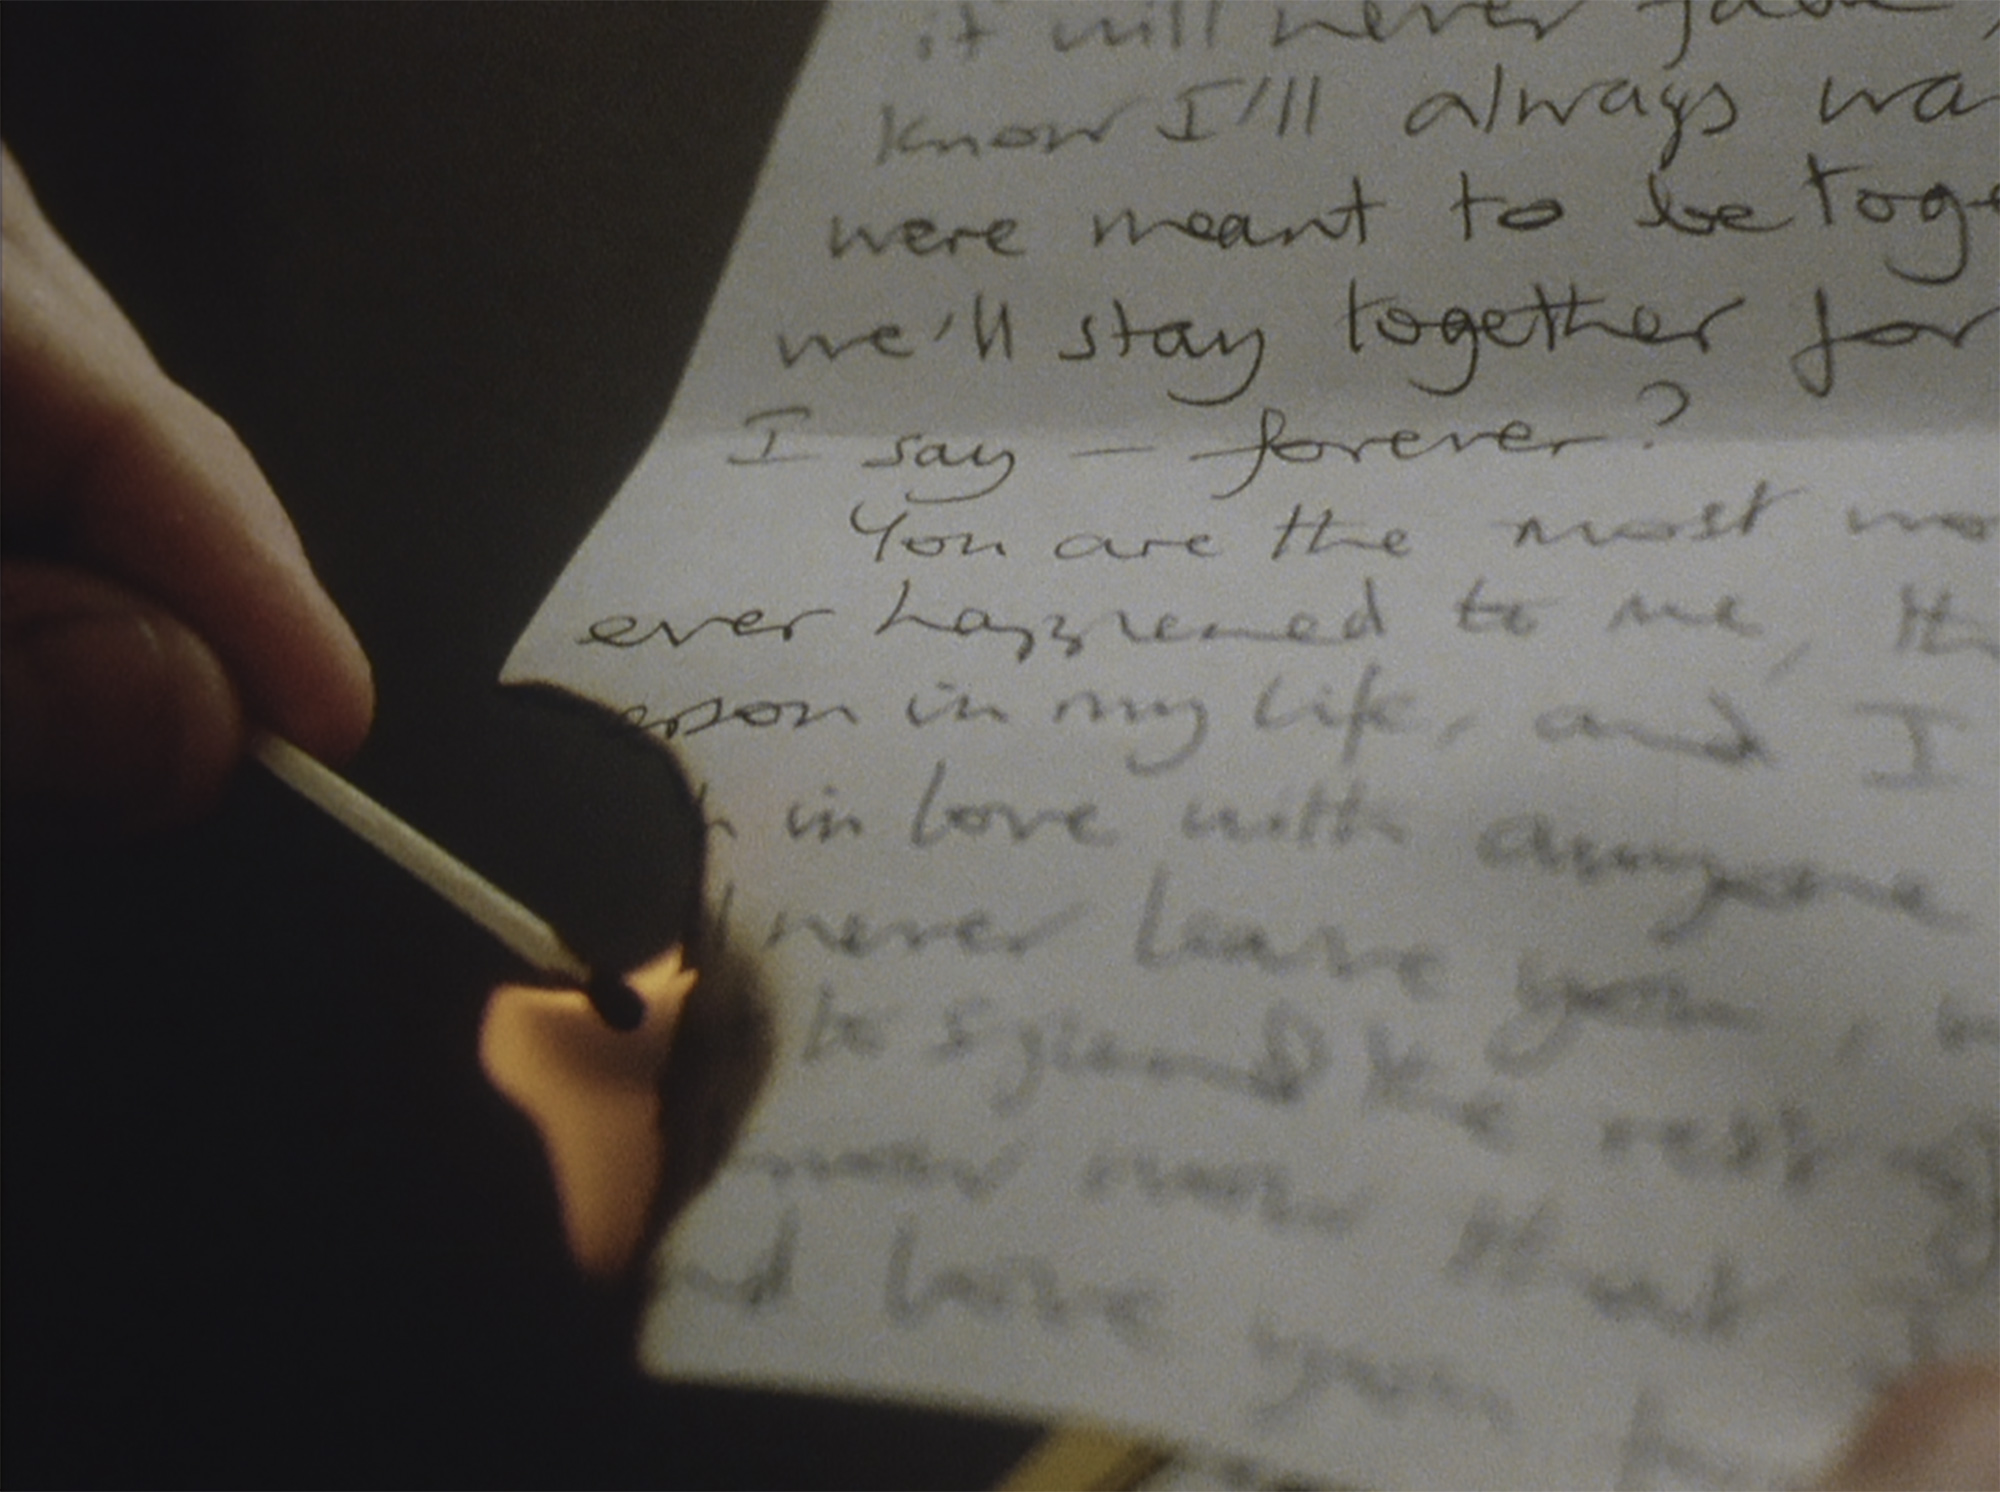 it will never fade,
know I'll always wa
were meant to be toge
we'll stay together for
I say — forever?
You are the most wo
ever happened to me, th
erson in my life, and I
in love with anyone
never leave you,
to spend the rest of
know now that
nd love you